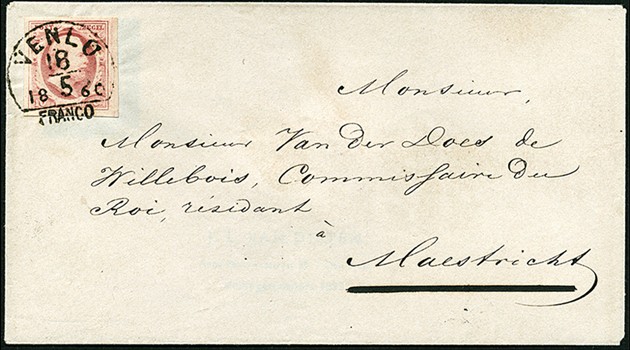 VENLO
18
5
18 60
FRANCO
Monsieur,
Monsieur Van der Does de
Willebois, Commissaire du
Roi, résidant
à
Maestricht